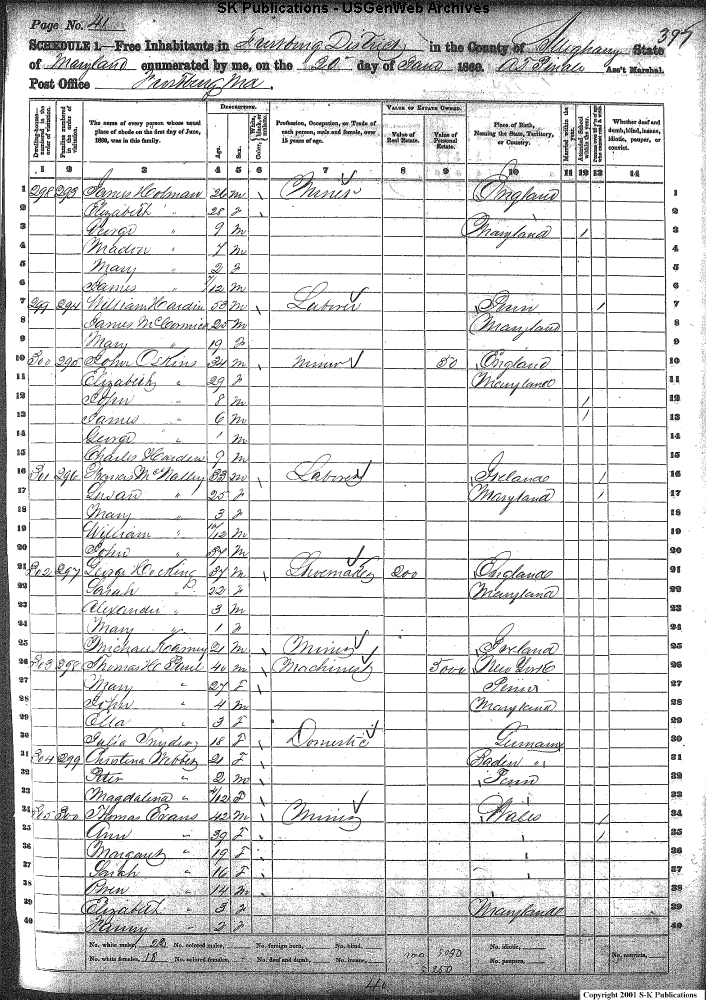 SK Publications - USGenWeb Archives
Page No. 41 395
SCHEDULE 1.—Free Inhabitants in Frostburg District in the County of Alleghany State
of Maryland enumerated by me, on the 20 day of June 1860. Ass't Marshal.
Post Office Frostburg Md.
DESCRIPTION. VALUE OF ESTATE OWNED.
Dwelling-houses—numbered in the order of visitation. Families numbered in the order of visitation. The name of every person whose usual place of abode on the first day of June, 1860, was in this family. Age. Sex. Color, White, black, or mulatto. Profession, Occupation, or Trade of each person, male and female, over 15 years of age. Value of Real Estate. Value of Personal Estate. Place of Birth, Naming the State, Territory, or Country. Married within the year. Attended School within the year. Whether deaf and dumb, blind, insane, idiotic, pauper, or convict.
1 2 3 4 5 6 7 8 9 10 11 12 13 14
1 298 293 James Holman 26 m Miner England 1
2 Elizabeth " 28 f 2
3 George " 9 m Maryland / 3
4 " 7 m 4
5 Mary " 2 f 5
6 James " /12 m 6
7 299 294 William Hardin 53 m Laborer Penn / 7
8 James McCormick 25 m Maryland 8
9 Mary " 19 f 9
10 300 295 John Oskins 34 m Minor 50 England 10
11 Elizabeth " 29 f Maryland 11
12 John " 8 m / 12
13 James " 6 m / 13
14 George " 1 m 14
15 Charles Harden 9 m 15
16 301 296 Francis McNalley 33 m Laborer Ireland / 16
17 Susan " 25 f Maryland / 17
18 Mary " 3 f 18
19 William " /12 m 19
20 John " 37 m 20
21 302 297 George Hocking 37 m Shoemaker 200 England 21
22 Sarah " 22 f Maryland 22
23 Alexander " 3 m 23
24 Mary " 1 f 24
25 Michael Kearney 21 m Miner Ireland 25
26 303 298 Thomas H Paul 40 m Machinest 5000 New York 26
27 Mary " 27 F Penn 27
28 John " 4 m Maryland 28
29 Ella " 3 F 29
30 Julia Snyder 18 F Domestic Germany 30
31 304 299 Christina 21 F Baden " 31
32 Peter " 2 m Penn 32
33 Magdalina " /12 F 33
34 305 300 Thomas Evans 42 m Miner Wales / 34
35 Ann " 39 F / 35
36 Margaret " 19 F 36
37 Sarah " 16 F 37
38 Owen " 14 m 38
39 Elizabeth " 3 f Maryland 39
40 Fanny " 2 f 40
No. white males, 22 No. colored males, No. foreign born, No. blind, No. idiotic,
No. white females, 18 No. colored females, No. deaf and dumb, No. insane, No. paupers, No. convicts,
Copyright 2001 S-K Publications